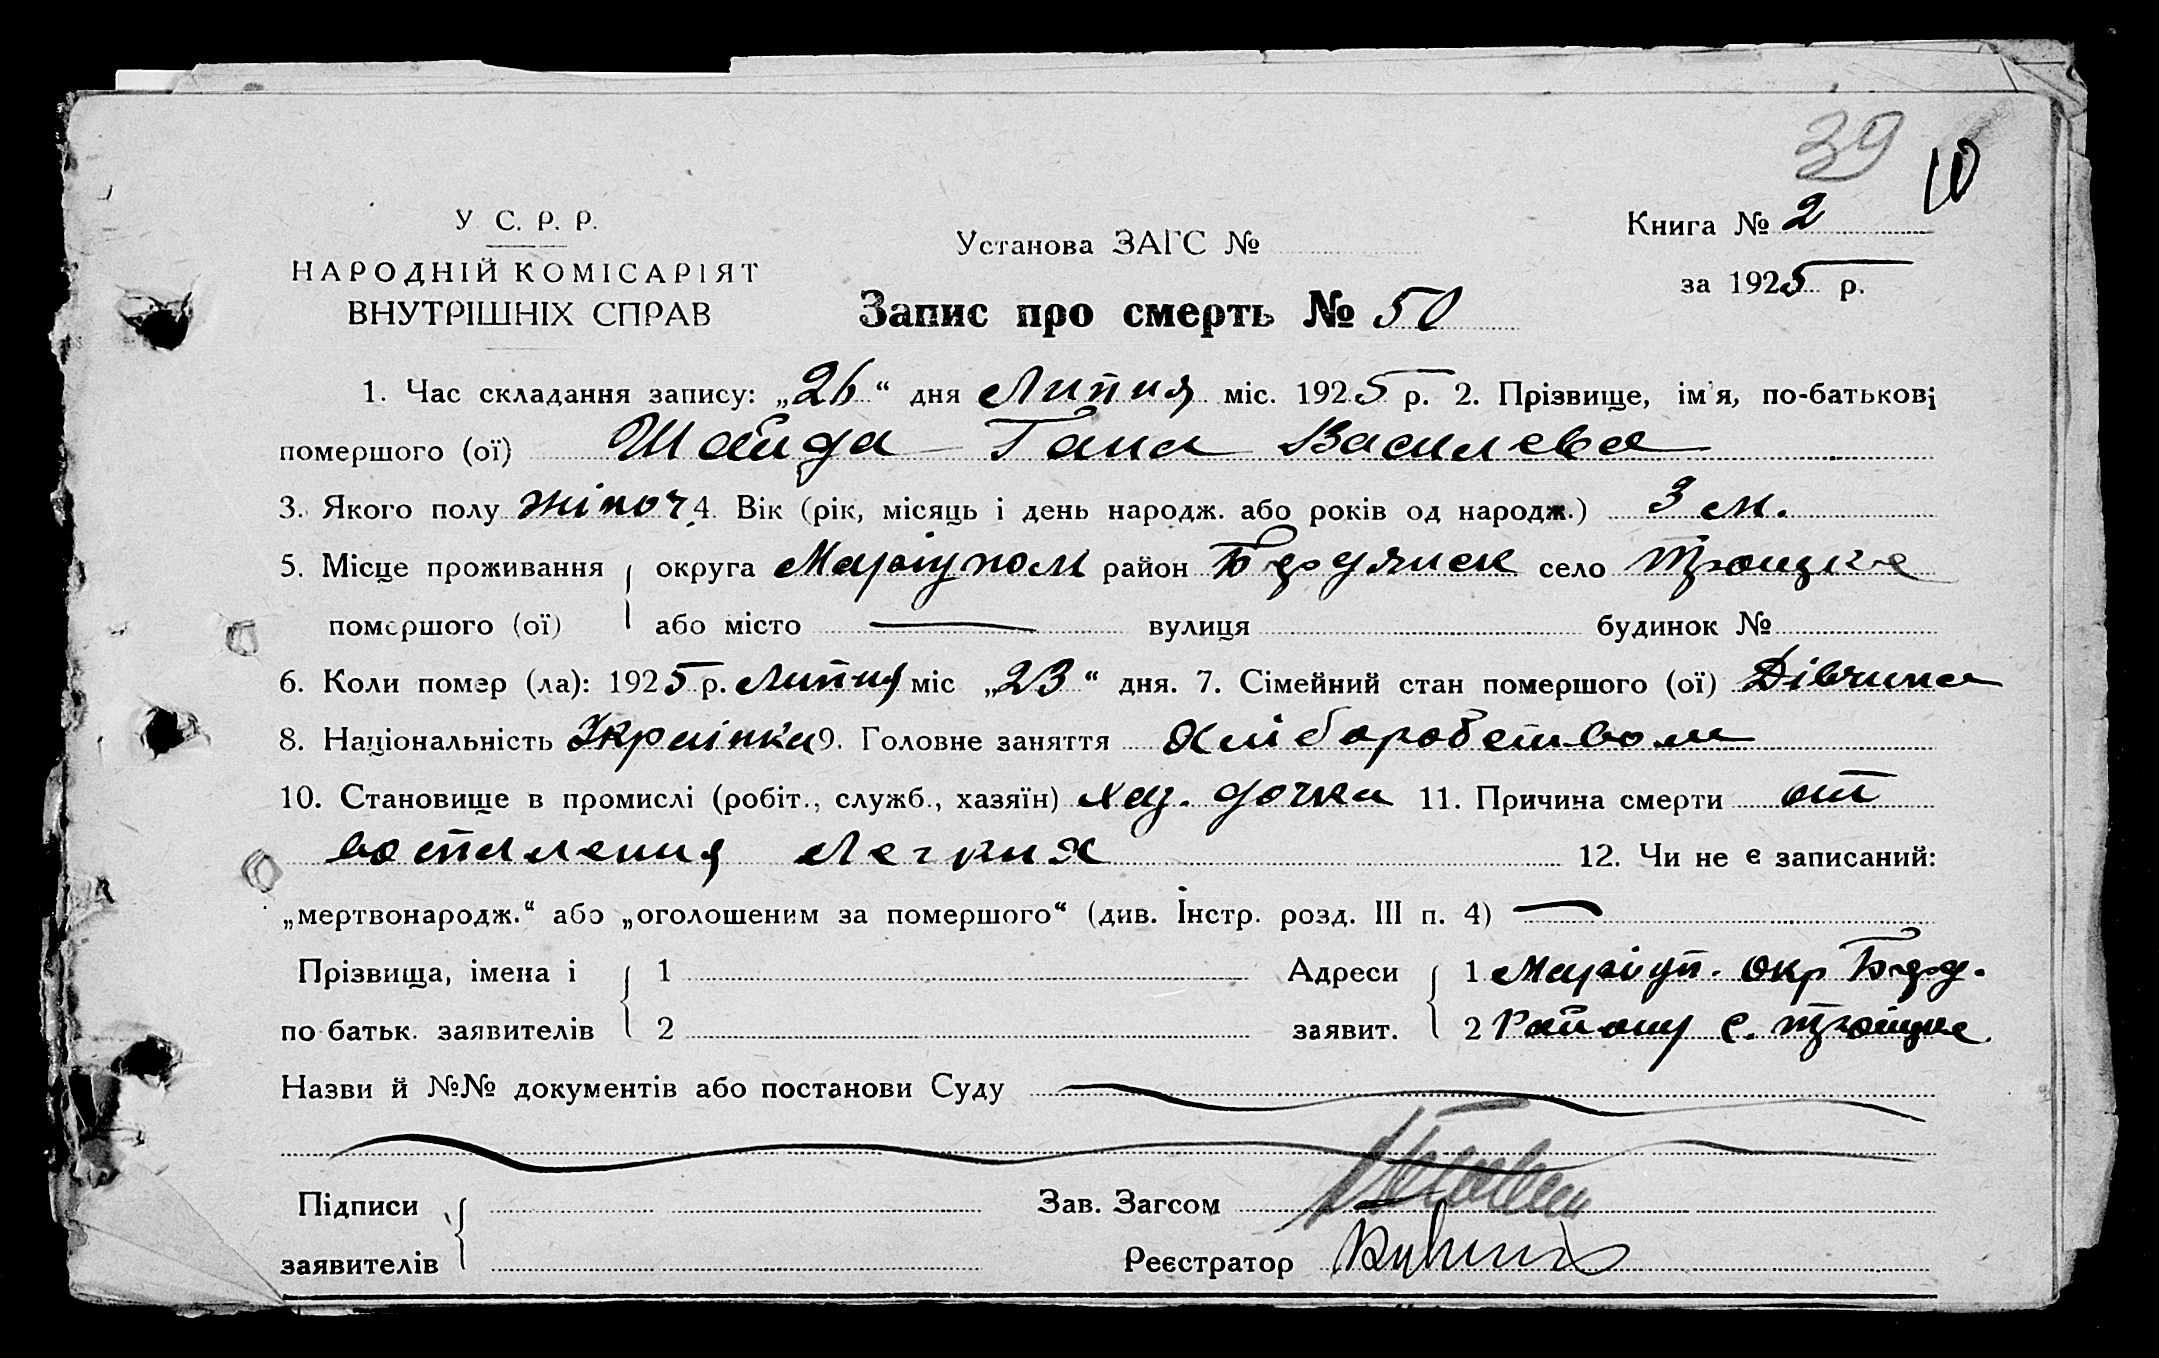 39 10
У С. Р. Р.
НАРОДНІЙ КОМІСАРІЯТ
ВНУТРІШНІХ СПРАВ
Установа ЗАГС №
Запис про смерть № 50
Книга № 2
за 1925 р.
1. Час складання запису: „26“ дня Липня міс. 1925 р. 2. Прізвище, ім'я, по-батькові
помершого (ої) Шайда Гана Василева
3. Якого полу жіноч 4. Вік (рік, місяць і день народж. або років од народж.) 3 м.
5. Місце проживання округа Маріупол район Бердянск село Троицке
помершого (ої) або місто — вулиця будинок №
6. Коли помер (ла): 1925 р. Липня міс „23“ дня. 7. Сімейний стан помершого (ої) Дівчина
8. Національність Украінка 9. Головне заняття Хліборобством
10. Становище в промислі (робіт., служб., хазяїн) хаз. дочка 11. Причина смерти от
воспаления легких 12. Чи не є записаний:
„мертвонародж.“ або „оголошеним за помершого“ (див. Інстр. розд. III п. 4) —
Прізвища, імена і 1 Адреси 1 Маріуп. окр Берд.
по батьк. заявителів 2 заявит. 2 Району с. Троіцке
Назви й №№ документів або постанови Суду
Підписи Зав. Загсом
заявителів Реєстратор